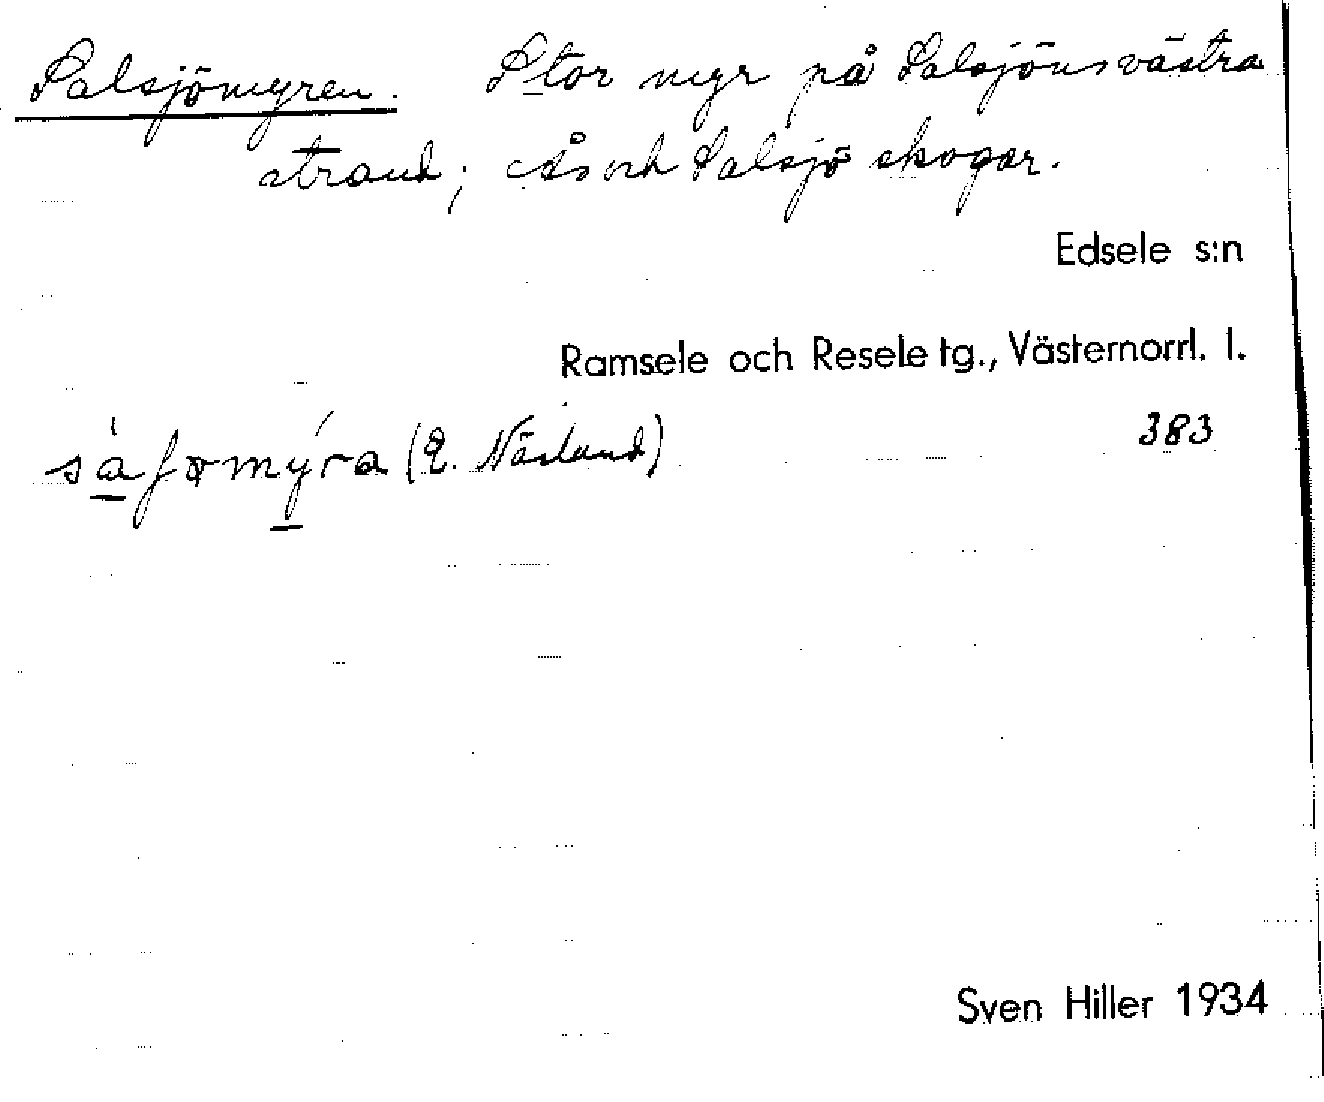 Salsjömyren. Stor myr på Salsjöns västra
strand; Ås och Salsjö skogar.
Edsele s:n
Ramsele och Resele tg., Västernorrl. l.
383
(E. Näslund)
Sven Hiller 1934